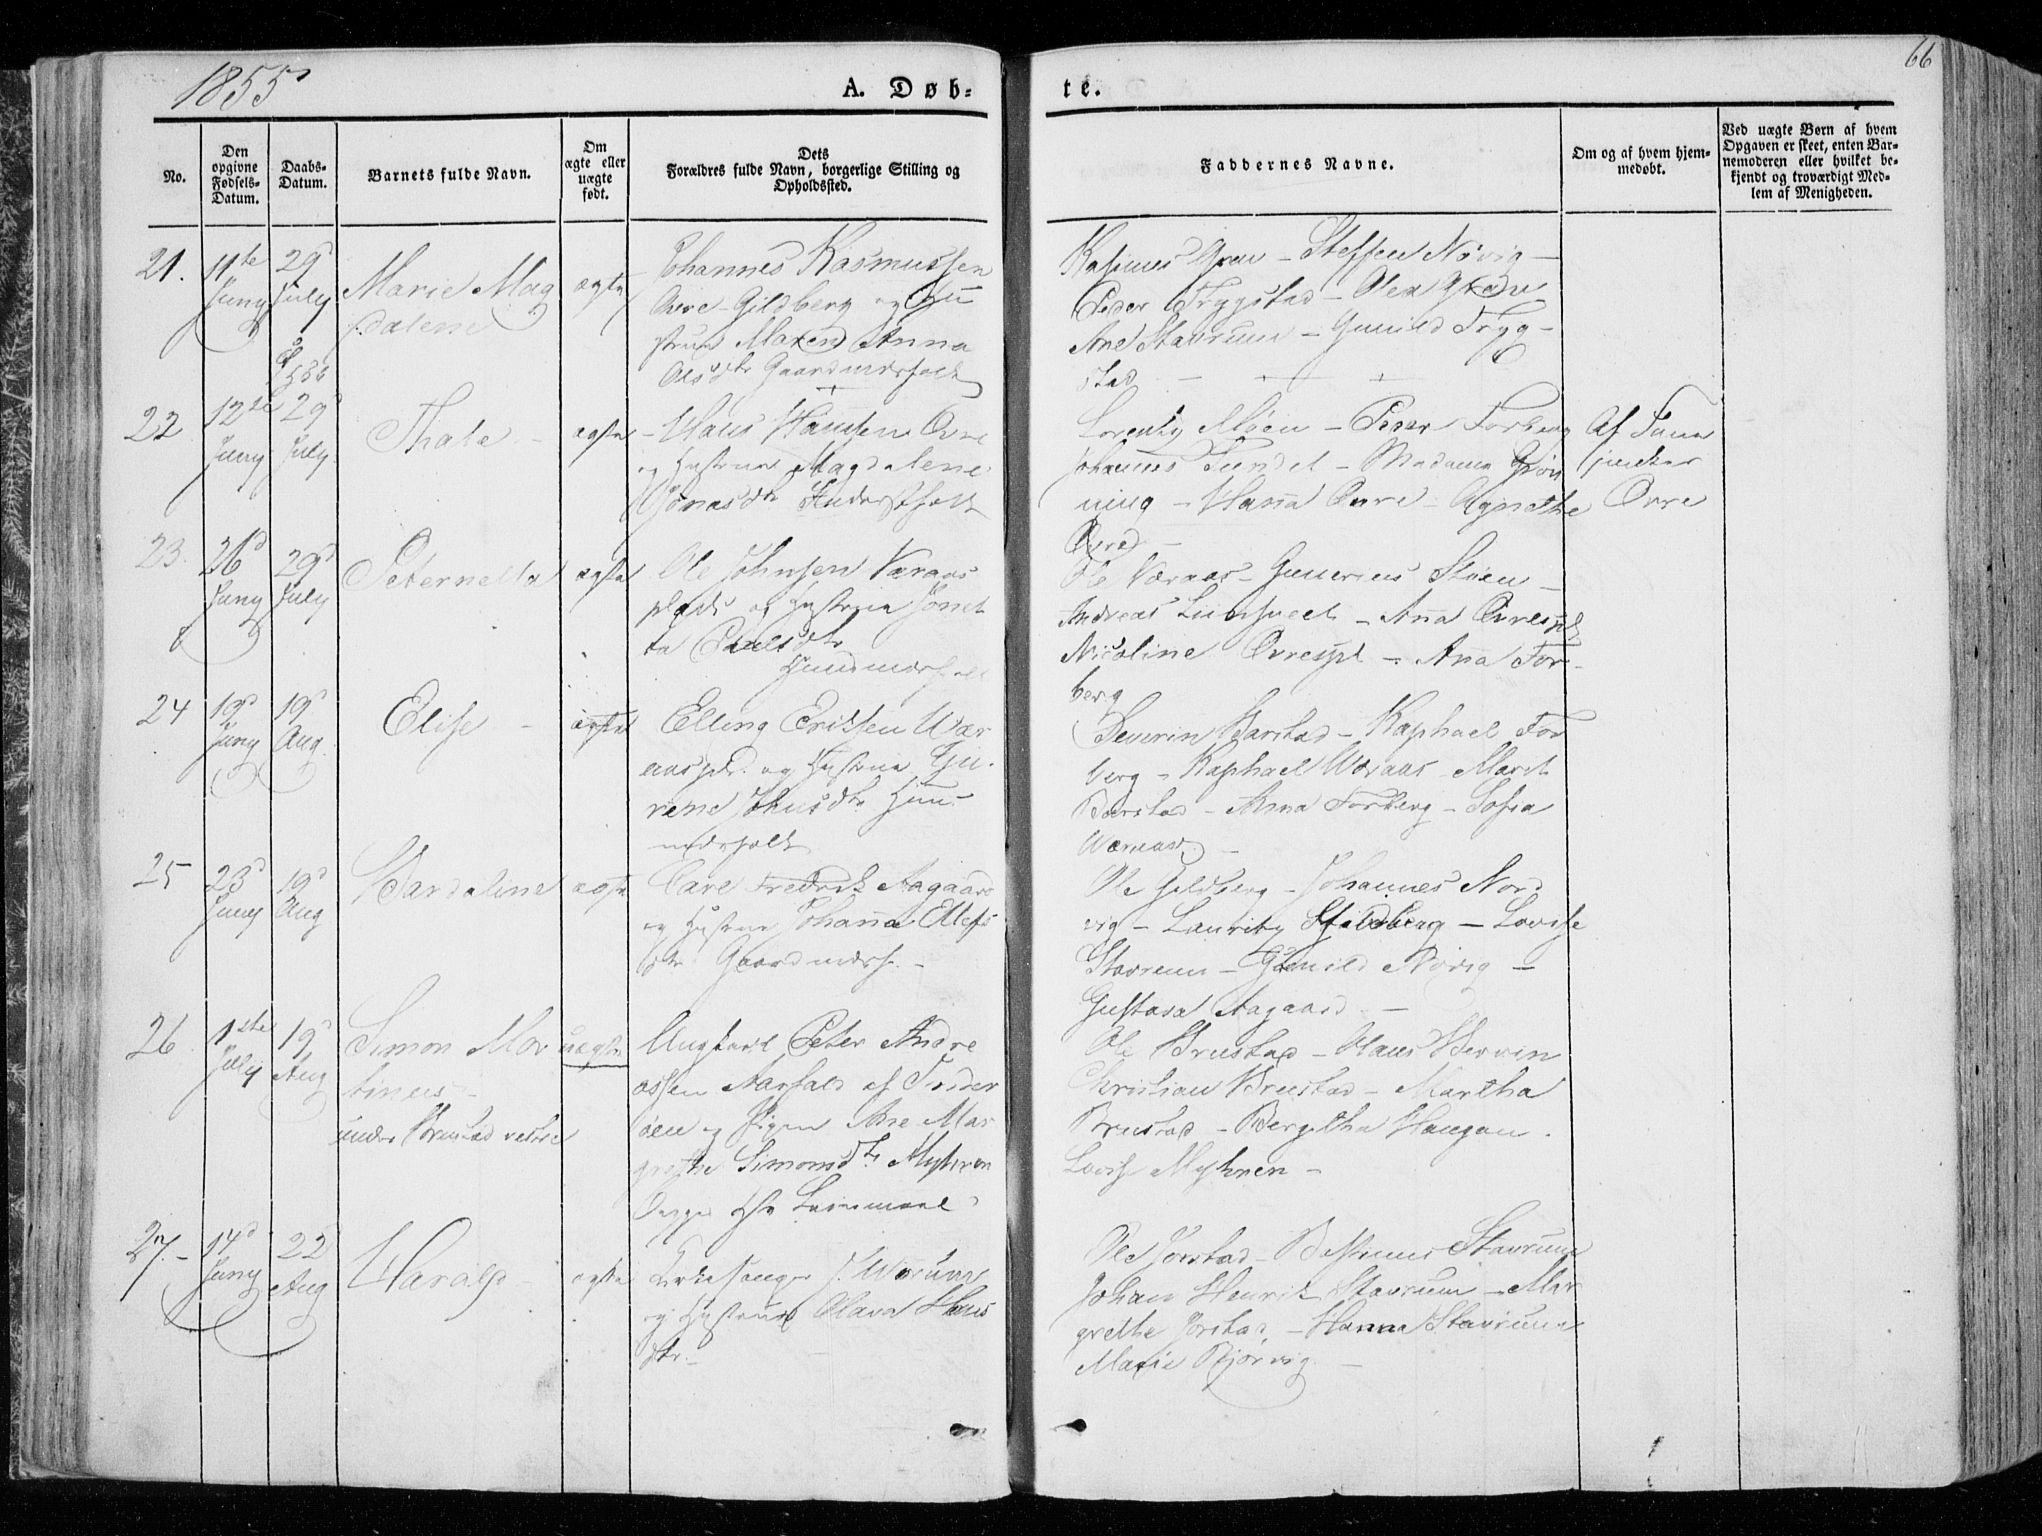 1855
66
A. Døb-
te.
No.
Den opgivne Fødsels-Datum.
Daabs-Datum.
Barnets fulde Navn.
Om ægte eller uægte født.
Dets Forældres fulde Navn, borgerlige Stilling og Opholdssted.
Faddernes Navne.
Om og af hvem hjem-medøbt.
Ved uægte Børn af hvem Opgaven er skeet, enten Bar-nemoderen eller hvilket be-kjendt og troværdigt Med-lem af Menigheden.
21.
11te Juny
29d July
Marie Mag
dalene
ægte
Johannes Rasmussen
Øvre-Gildberg og Hu
struen Maren Anna
Olsdtr Gaardmdsfolk
Rasmus Grøn - Steffen Nøvig -
Peder Trygstad - Olea Grøn
Ane Stavrum - Gunild Tryg-
stad
22
12te Juny
29d July
Thale -
ægte
- Hans Hansen Øvre
og Hustrue Magdalene
Jonasdtr
Lorentz Moen - Peder Forberg
Johannes Sundet - Madame Grøn
ning - Hanna Øvre - Agnethe
Øvre -
Af
junker
Øvre
23.
26d Juny
29d July
Peternella
ægte
Ole Johnsen Væraas
plads og Hustrue
ta Paulsdtr
Huusmdsfolk
Ole Væraas - Gunerius Støen -
Andreas - Anna Øvrespl
Nicoline Øvrespl - Ana For-
berg
24
19d Juny
19d Aug
Elise -
ægte
Elling Erichsen Vær
aaspl. og Hustrue Gu
rine Johnsdtr Huus
mdsfolk
Severin Barstad - Raphael For
berg - Raphael Væraas Marit
Barstad - Anna Forberg - Sofia
Væraas -
25
23d Juny
19d Aug
Bardaline
ægte
Carl Fredrik Aagaard
og Hustrue Johanna Ellefs
dtr Gaardmdsf. -
Ole Gildberg - Johannes Nord
vig - Lauritz Gildberg - Lovise
Stavrum - Gunild Nøvig -
Gustava Aagaard -
26
1ste July
19d Aug
Simon Mor
tinus -
under Brustad vestre
uægte
Ungkarl Peter Andre
assen Aarfald af Inder
øen og Pigen Ane Mar
grethe Simonsdtr Myhren
Begges 1ste Leiermaal
Ole Brustad - Hans Bervin
Christian Brustad - Martha
Brustad - Bergitha Haugan.
Lovise Myhren -
27. -
14d Juny
22d Aug
Harald -
ægte
Kirkesanger J. Værum
og Hustrue Olava Hans
dtr. -
Ole Jørstad - Rasmus Stavrum
Johan Henrik Stavrum - Mar
grethe Jørstad - Hanna Stavrum
Marie Bjørvig. -